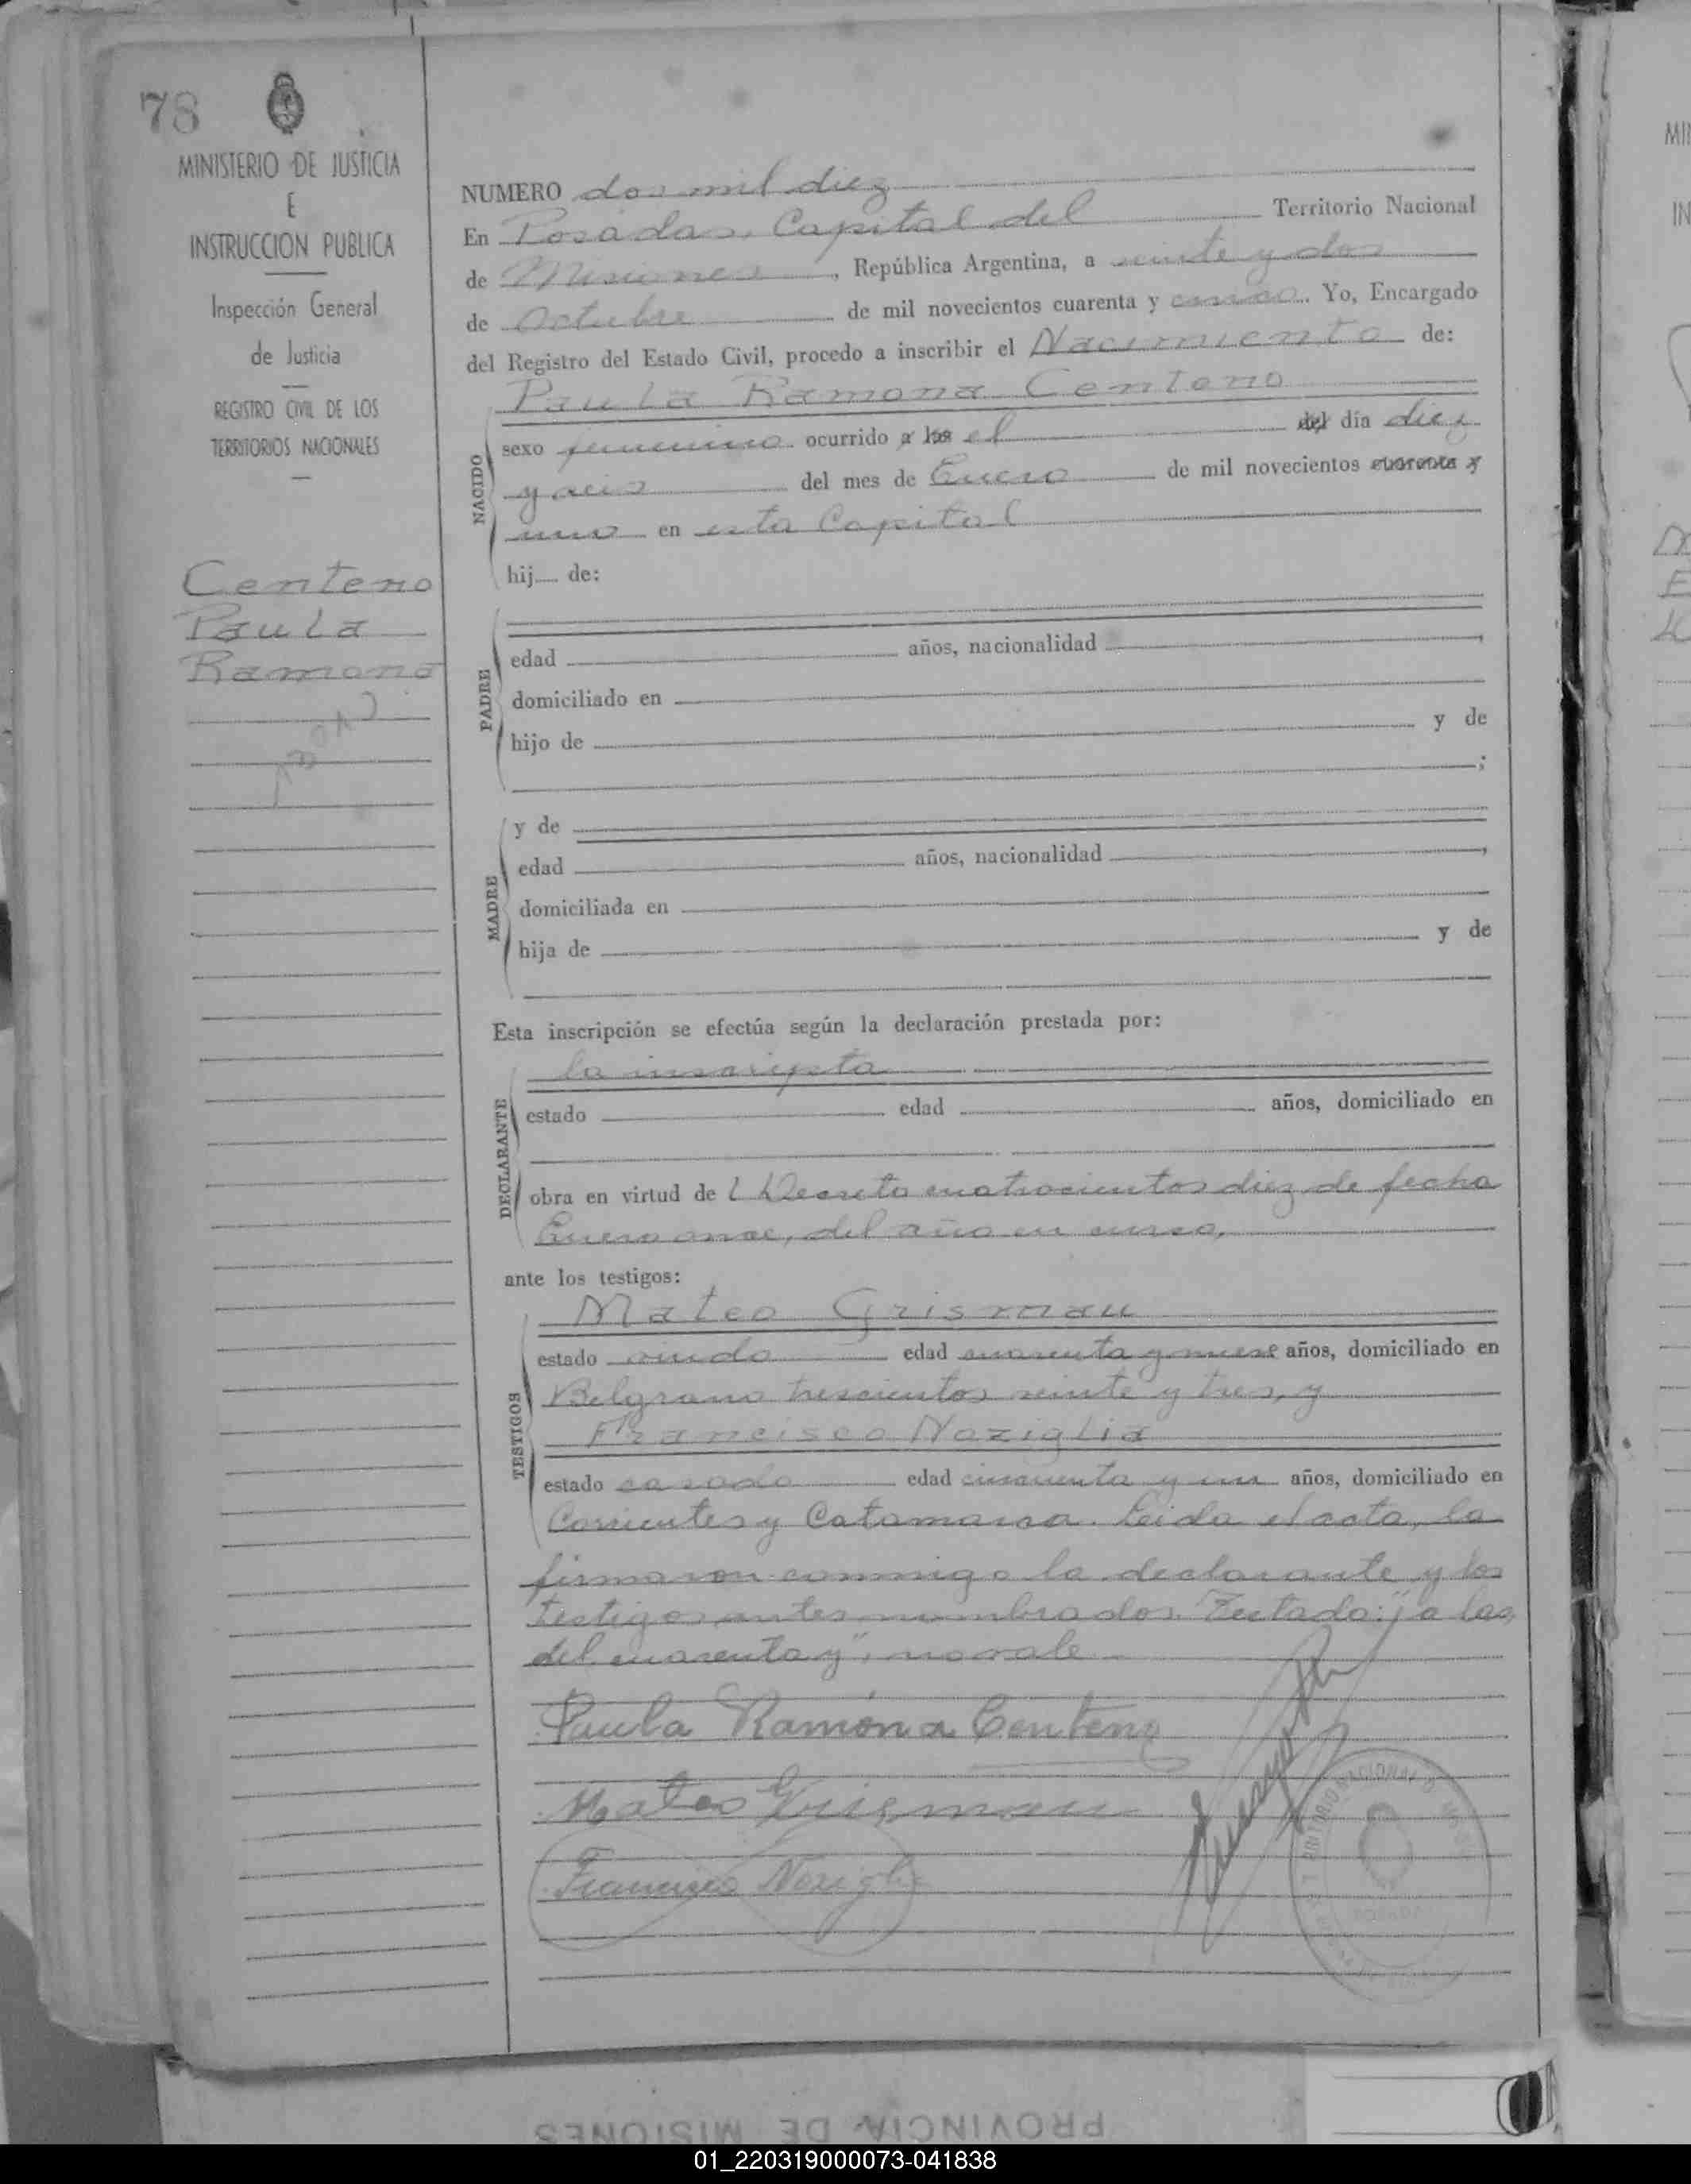 78
MINISTERIO DE JUSTICIA
E
INSTRUCCION PUBLICA
Inspección General
de Justicia
REGISTRO CIVIL DE LOS
TERRITORIOS NACIONALES
Centeno
Paula
Ramona
NUMERO dos mil diez
En Posadas, Capital del Territorio Nacional
de Misiones, República Argentina, a veinte y dos
de Octubre de mil novecientos cuarenta y cinco. Yo, Encargado
del Registro del Estado Civil, procedo a inscribir el Nacimiento de:
Paula Ramona Centeno
NACIDO
sexo femenino ocurrido a las el del día diez
y seis del mes de Enero de mil novecientos cuarenta y
uno en esta Capital
hij de:
PADRE
edad años, nacionalidad ,
domiciliado en
hijo de y de
;
MADRE
y de
edad años, nacionalidad ,
domiciliada en
hija de y de
Esta inscripción se efectúa según la declaración prestada por:
la inscripta
DECLARANTE
estado edad años, domiciliado en
obra en virtud de l Decreto cuatrocientos diez de fecha
Enero once, del año en curso,
ante los testigos:
TESTIGOS
Mateo Grisman
estado viudo edad cuarenta y nueve años, domiciliado en
Belgrano trescientos veinte y tres, y
Francisco Naziglia
estado casado edad cincuenta y un años, domiciliado en
Corrientes y Catamarca. Leida el acta, la
firmaron conmigo la declarante y los
testigos antes nombrados. Testado: "a las
del cuarenta y", no vale
Paula Ramona Centeno
Mateo Grisman
Francisco Nazigli
PROVINCIA DE MISIONES
01_220319000073-041838